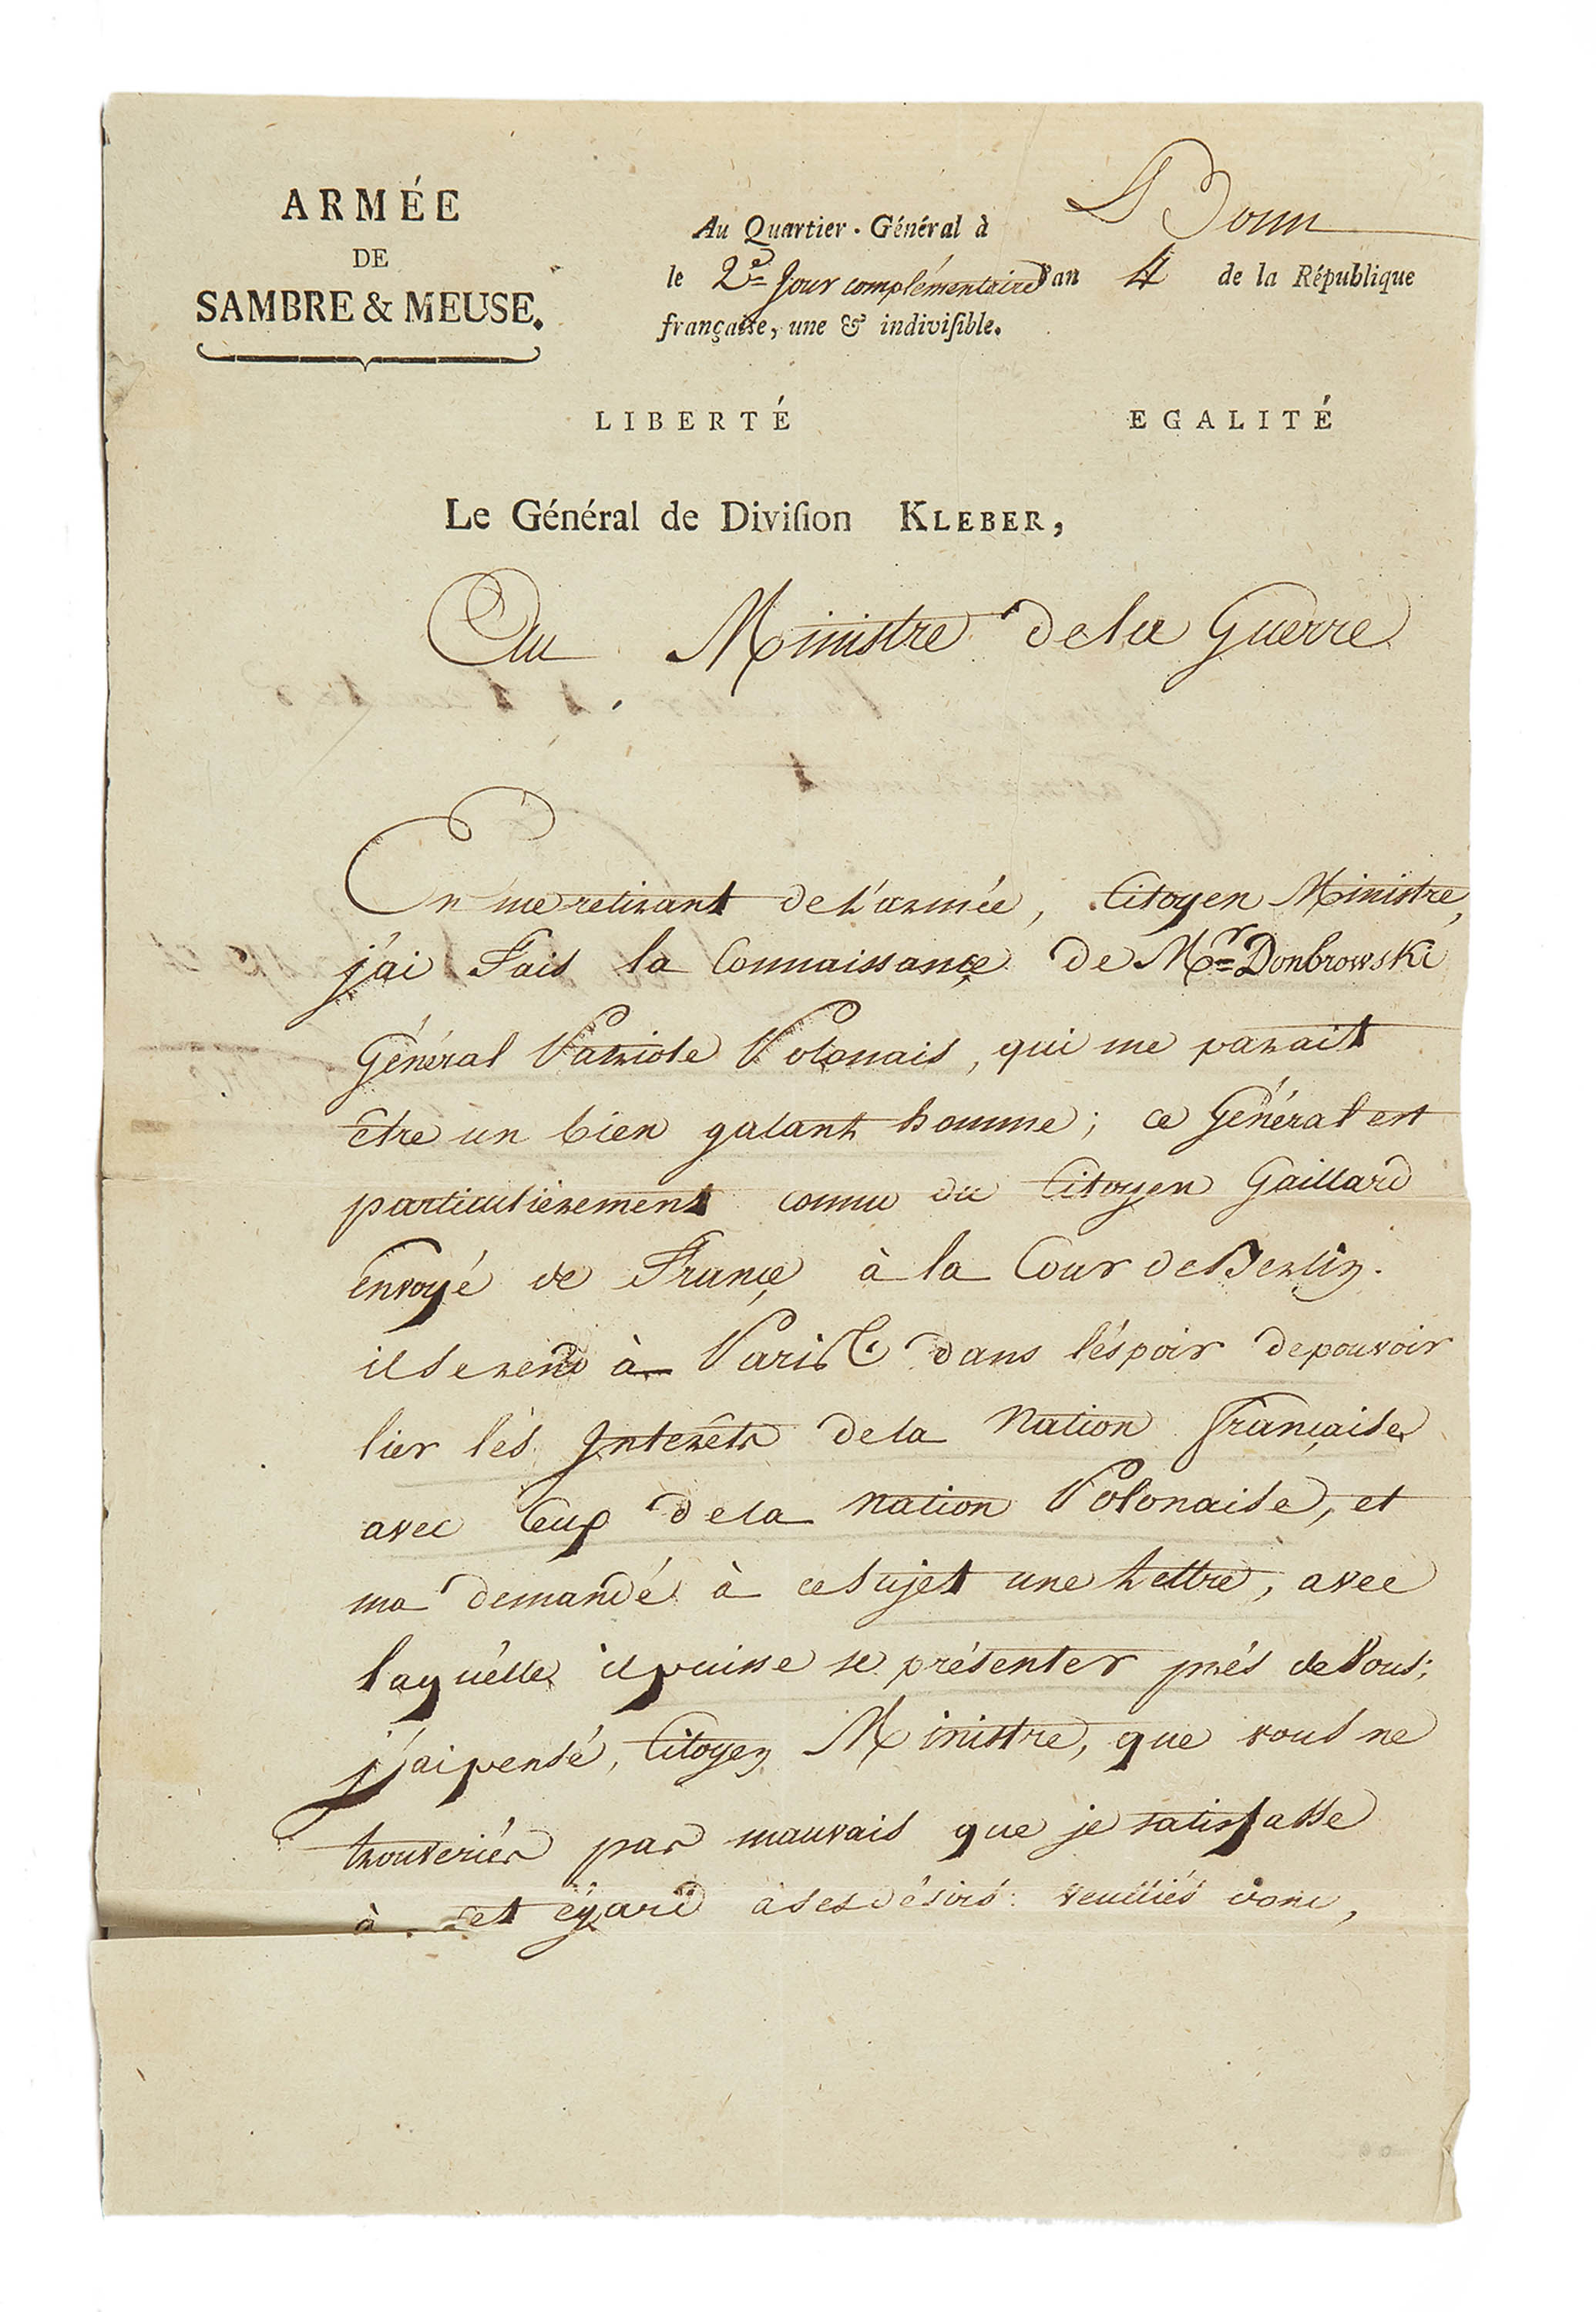 ARMÉE
DE
SAMBRE & MEUSE.
Au Quartier-Général à Bonn
le 2e Jour complémentaire l'an 4 de la République
françaiſe, une & indiviſible.
LIBERTÉ EGALITÉ
Le Général de Diviſion KLEBER,
Au Ministre de la Guerre
En me retirant de l'armée, Citoyen Ministre,
j'ai Fais la Connaissançe de Mr Donbrowski
Général Patriote Polonais, qui me parait
être un bien galant homme; ce Général est
particulièrement connu du Citoyen Gaillard
Envoyé de Françe à la Cour de Berlin.
il se rend à Paris dans l'éspoir de pouvoir
lier lés Interêts de la Nation Française
avec Ceux de la Nation Polonaise, et
ma demandé à ce Sujet une Lettre, avec
laquélle il puisse se présenter prés de Vous;
j'ai pensé, Citoyen Ministre, que vous ne
trouveriés pas mauvais que je satisfasse
à cet égard à ses désirs: veuillés donc,